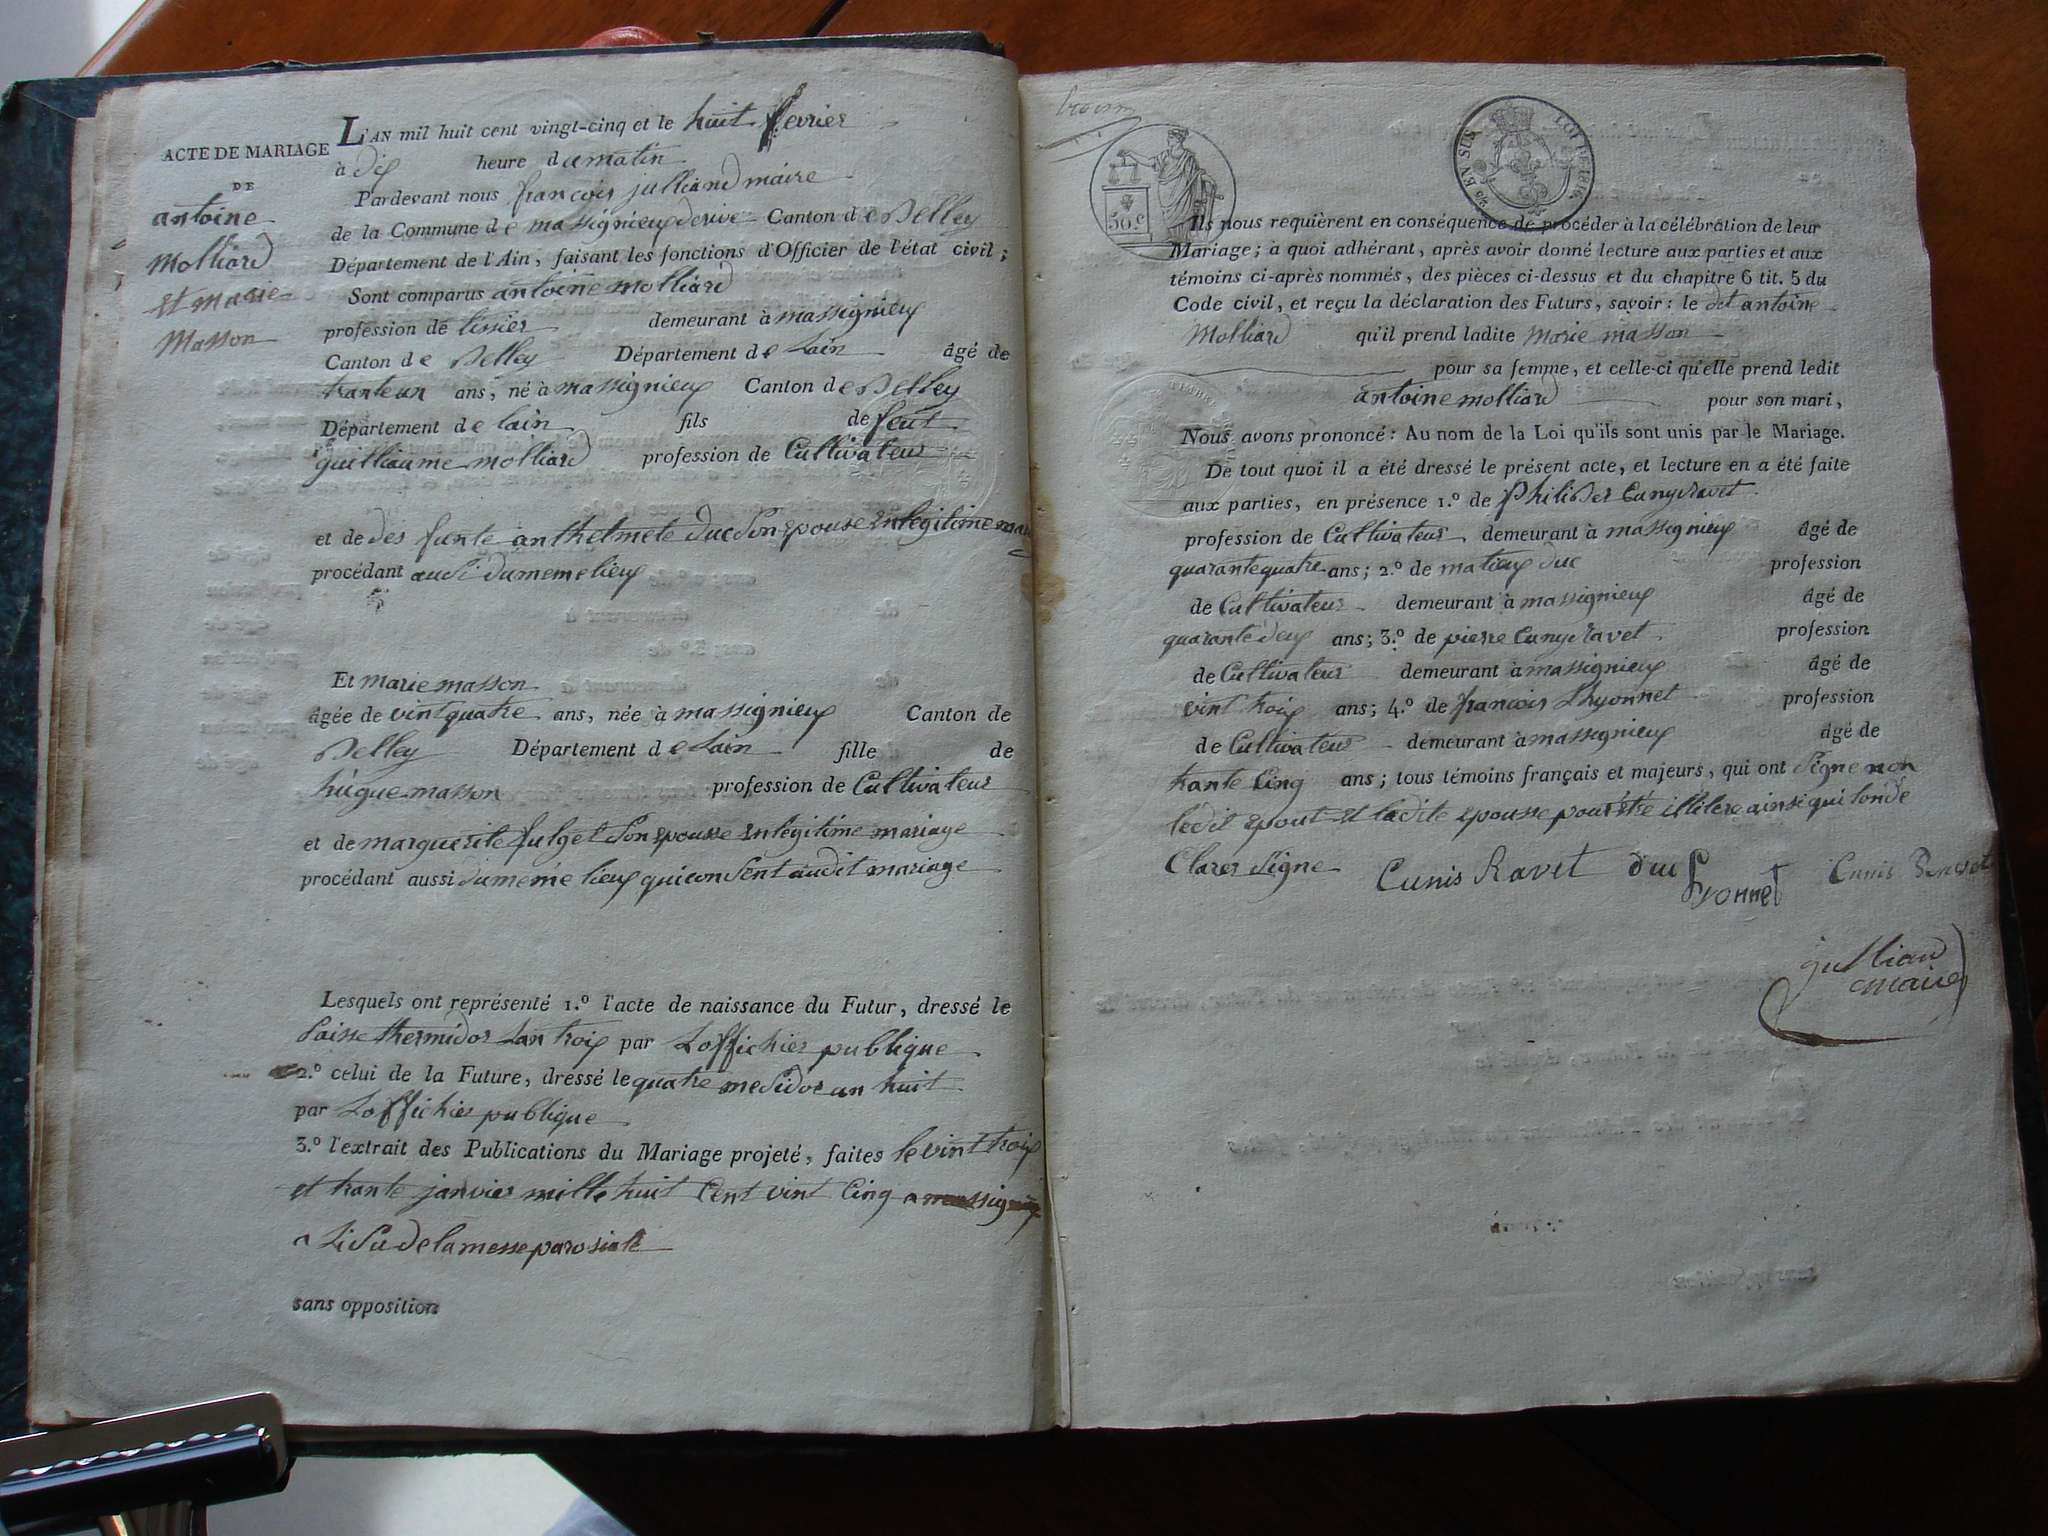 ACTE DE MARIAGE
DE
antoine
molliard
et marie
masson
L'AN mil huit cent vingt-cinq et le huit fevrier
à dix heure du matin
Pardevant nous françois julliand maire
de la Commune de massignieux de rive Canton de Belley
Département de l'Ain, faisant les fonctions d'Officier de l'état civil;
Sont comparus antoine molliard
profession de tissier demeurant à massignieux
Canton de Belley Département de Lain âgé de
tranteun ans, né à massignieux Canton de Belley
Département de lain fils de feut
guilliaume molliard profession de Cultivateur
et de des funte anthelmete duc Son epouse en legitime
procédant audi du meme lieux
Et marie masson
âgée de vint quatre ans, née à massignieux Canton de
Belley Département de Lain fille de
hugue masson profession de Cultivateur
et de marguerite fulget Son epousse en legitime mariage
procédant aussi du meme lieux qui con Sent audit mariage
Lesquels ont représenté 1.º l'acte de naissance du Futur, dressé le
thermidor Lan troix par Loffichier publique
2.º celui de la Future, dressé le quatre mesidor an huit
par Loffichier publique
3.º l'extrait des Publications du Mariage projeté, faites le vint troix
et trante janvier mille huit Cent vint Cinq a
a de la messe parosiale
sans opposition
50 c
EN SUS
LOI DE 1816
Ils nous requièrent en conséquence de procéder à la célébration de leur
Mariage; à quoi adhérant, après avoir donné lecture aux parties et aux
témoins ci-après nommés, des pièces ci-dessus et du chapitre 6 tit. 5 du
Code civil, et reçu la déclaration des Futurs, savoir: le dit antoine
Molliard qu'il prend ladite marie masson
pour sa femme, et celle-ci qu'elle prend ledit
antoine molliard pour son mari,
Nous avons prononcé: Au nom de la Loi qu'ils sont unis par le Mariage.
De tout quoi il a été dressé le présent acte, et lecture en a été faite
aux parties, en présence 1.º de philiber Cuny Ravet
profession de Cultivateur demeurant à massignieux âgé de
quarante quatre ans; 2.º de matieux duc profession
de Cultivateur demeurant à massignieux âgé de
quarante deux ans; 3.º de pierre Cuny Ravet profession
de Cultivateur demeurant à massignieux âgé de
vint troix ans; 4.º de francois Lhyonnet profession
de Cultivateur demeurant à massignieux âgé de
trante Cinq ans; tous témoins français et majeurs, qui ont Signe non
ledit epout et ladite epousse pour étre illitere ainsi qui lon dé
Clarer Signe Cunis Ravet duc Lyonnet Cunis
jullian
maire